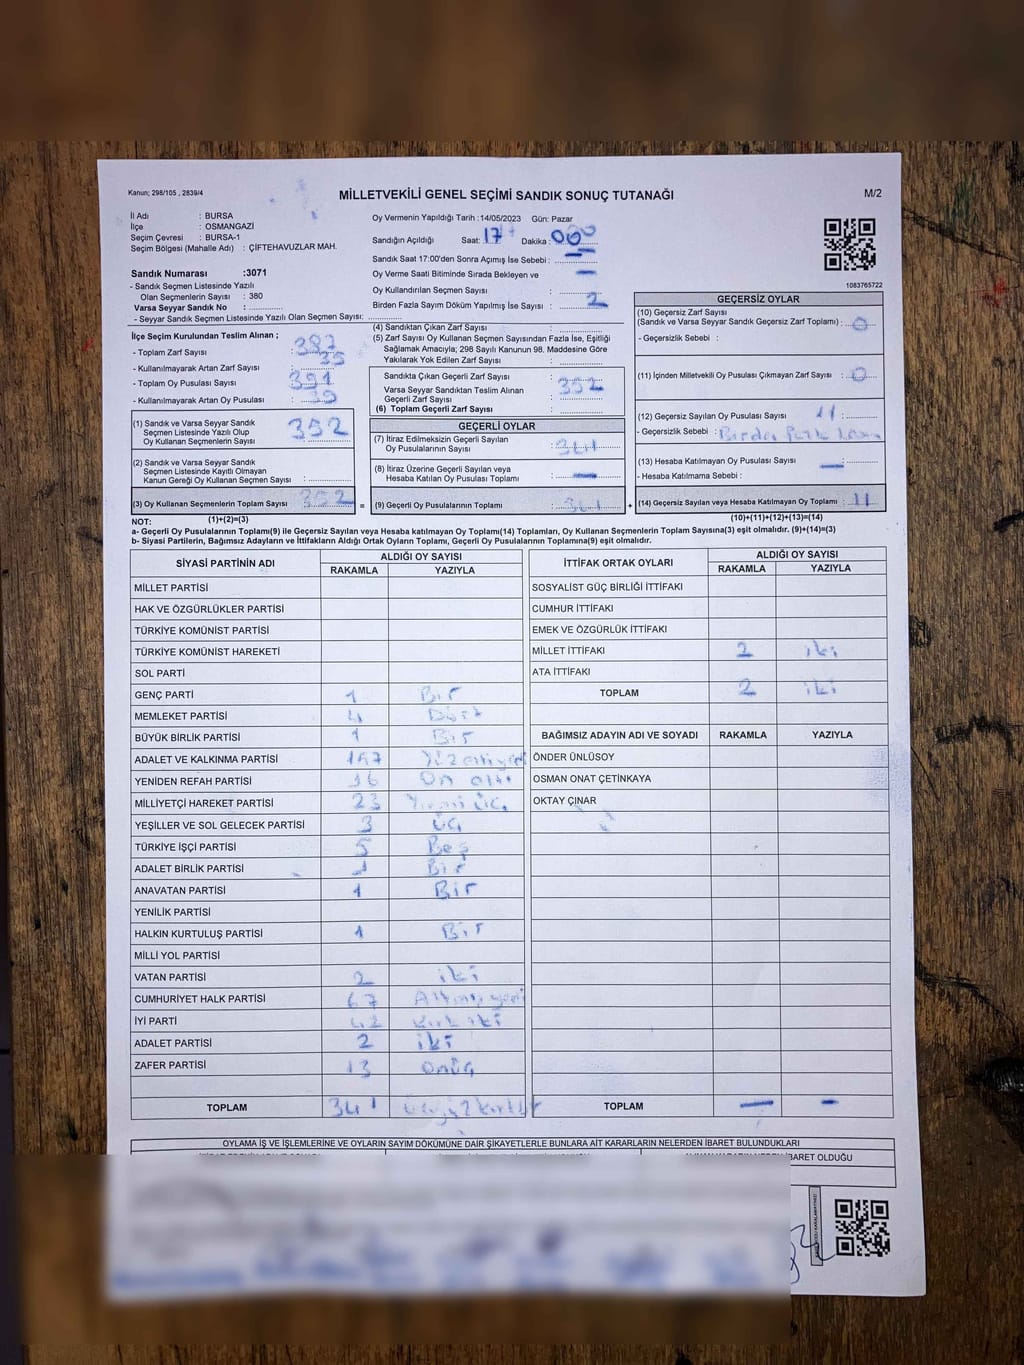 Kanun; 298/105 , 2839/4
MİLLETVEKİLİ GENEL SEÇİMİ SANDIK SONUÇ TUTANAĞI
M/2
İl Adı : BURSA
İlçe : OSMANGAZİ
Seçim Çevresi : BURSA-1
Seçim Bölgesi (Mahalle Adı) : ÇİFTEHAVUZLAR MAH.
Oy Vermenin Yapıldığı Tarih :14/05/2023 Gün: Pazar
Sandığın Açıldığı Saat: 17 Dakika :
Sandık Saat 17:00'den Sonra Açımış İse Sebebi :
Oy Verme Saati Bitiminde Sırada Bekleyen ve
Oy Kullandırılan Seçmen Sayısı :
Birden Fazla Sayım Döküm Yapılmış İse Sayısı : 2
1083765722
Sandık Numarası :3071
- Sandık Seçmen Listesinde Yazılı
Olan Seçmenlerin Sayısı : 380
Varsa Seyyar Sandık No :
- Seyyar Sandık Seçmen Listesinde Yazılı Olan Seçmen Sayısı:
İlçe Seçim Kurulundan Teslim Alınan ;
- Toplam Zarf Sayısı : 387
- Kullanılmayarak Artan Zarf Sayısı : 35
- Toplam Oy Pusulası Sayısı : 391
- Kullanılmayarak Artan Oy Pusulası : 39
(1) Sandık ve Varsa Seyyar Sandık
Seçmen Listesinde Yazılı Olup
Oy Kullanan Seçmenlerin Sayısı : 352
(2) Sandık ve Varsa Seyyar Sandık
Seçmen Listesinde Kayıtlı Olmayan
Kanun Gereği Oy Kullanan Seçmen Sayısı :
(3) Oy Kullanan Seçmenlerin Toplam Sayısı : 352
(1)+(2)=(3)
(4) Sandıktan Çıkan Zarf Sayısı :
(5) Zarf Sayısı Oy Kullanan Seçmen Sayısından Fazla İse, Eşitliği
Sağlamak Amacıyla; 298 Sayılı Kanunun 98. Maddesine Göre
Yakılarak Yok Edilen Zarf Sayısı :
Sandıkta Çıkan Geçerli Zarf Sayısı
Varsa Seyyar Sandıktan Teslim Alınan
Geçerli Zarf Sayısı : 352
(6) Toplam Geçerli Zarf Sayısı
GEÇERLİ OYLAR
(7) İtiraz Edilmeksizin Geçerli Sayılan
Oy Pusulalarının Sayısı : 341
(8) İtiraz Üzerine Geçerli Sayılan veya
Hesaba Katılan Oy Pusulası Toplamı : —
= (9) Geçerli Oy Pusulalarının Toplamı : 341
GEÇERSİZ OYLAR
(10) Geçersiz Zarf Sayısı
(Sandık ve Varsa Seyyar Sandık Geçersiz Zarf Toplamı) : 0
- Geçersizlik Sebebi :
(11) İçinden Milletvekili Oy Pusulası Çıkmayan Zarf Sayısı : 0
(12) Geçersiz Sayılan Oy Pusulası Sayısı : 11
- Geçersizlik Sebebi :
(13) Hesaba Katılmayan Oy Pusulası Sayısı : —
- Hesaba Katılmama Sebebi :
+ (14) Geçersiz Sayılan veya Hesaba Katılmayan Oy Toplamı : 11
(10)+(11)+(12)+(13)=(14)
NOT:
a- Geçerli Oy Pusulalarının Toplamı(9) ile Geçersiz Sayılan veya Hesaba katılmayan Oy Toplamı(14) Toplamları, Oy Kullanan Seçmenlerin Toplam Sayısına(3) eşit olmalıdır. (9)+(14)=(3)
b- Siyasi Partilerin, Bağımsız Adayların ve İttifakların Aldığı Ortak Oyların Toplamı, Geçerli Oy Pusulalarının Toplamına(9) eşit olmalıdır.
SİYASİ PARTİNİN ADI ALDIĞI OY SAYISI
RAKAMLA YAZIYLA
MİLLET PARTİSİ
HAK VE ÖZGÜRLÜKLER PARTİSİ
TÜRKİYE KOMÜNİST PARTİSİ
TÜRKİYE KOMÜNİST HAREKETİ
SOL PARTİ
GENÇ PARTİ 1 Bir
MEMLEKET PARTİSİ 4 Dört
BÜYÜK BİRLİK PARTİSİ 1 Bir
ADALET VE KALKINMA PARTİSİ 157 Yüz elli yedi
YENİDEN REFAH PARTİSİ 16 On altı
MİLLİYETÇİ HAREKET PARTİSİ 23 Yirmi üç
YEŞİLLER VE SOL GELECEK PARTİSİ 3 üç
TÜRKİYE İŞÇİ PARTİSİ 5 Beş
ADALET BİRLİK PARTİSİ 1 Bir
ANAVATAN PARTİSİ 1 Bir
YENİLİK PARTİSİ
HALKIN KURTULUŞ PARTİSİ 1 Bir
MİLLİ YOL PARTİSİ
VATAN PARTİSİ 2 iki
CUMHURİYET HALK PARTİSİ 67 Altmış yedi
İYİ PARTİ 42 Kırk iki
ADALET PARTİSİ 2 iki
ZAFER PARTİSİ 13 onüç
TOPLAM 341
İTTİFAK ORTAK OYLARI ALDIĞI OY SAYISI
RAKAMLA YAZIYLA
SOSYALİST GÜÇ BİRLİĞİ İTTİFAKI
CUMHUR İTTİFAKI
EMEK VE ÖZGÜRLÜK İTTİFAKI
MİLLET İTTİFAKI 2 iki
ATA İTTİFAKI
TOPLAM 2 iki
BAĞIMSIZ ADAYIN ADI VE SOYADI RAKAMLA YAZIYLA
ÖNDER ÜNLÜSOY
OSMAN ONAT ÇETİNKAYA
OKTAY ÇINAR
TOPLAM — —
OYLAMA İŞ VE İŞLEMLERİNE VE OYLARIN SAYIM DÖKÜMÜNE DAİR ŞİKAYETLERLE BUNLARA AİT KARARLARIN NELERDEN İBARET BULUNDUKLARI
İBARET OLDUĞU